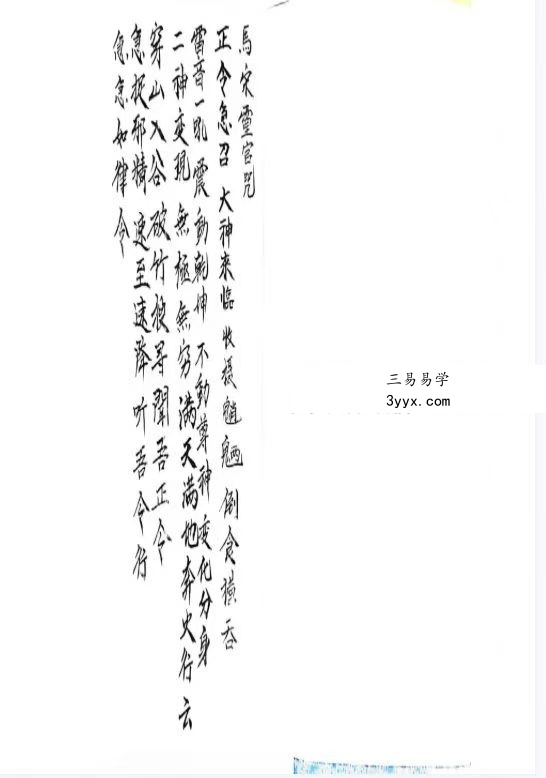 馬宋靈官咒
正令急召 大神来臨 收攝魑魎 倒食横吞
雷音一吼 震動乾坤 不動尊神 变化分身
二神变現 無極無穷 满天满地 奔火行云
穿山入谷 破竹搜寻 聞吾正令
急捉邪精 速至速降 听吾令行
急急如律令
三易易学
3yyx.com